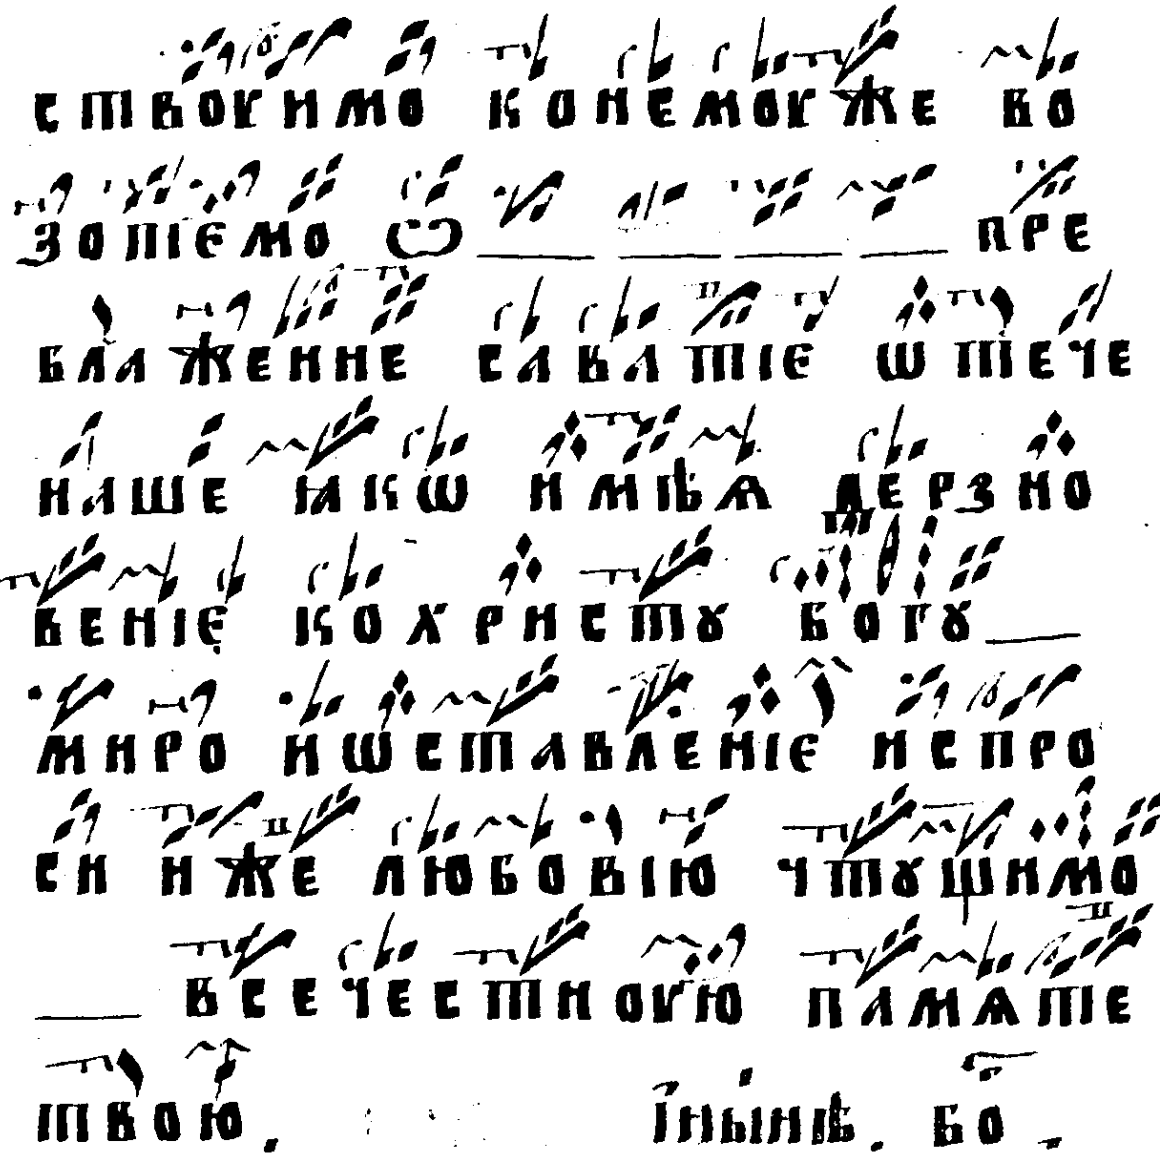 створимо к онемуже во
зопіемо ѿ пре
блаженне савватіе ѿтече
наше ꙗкѡ имѣѧ дерзно
веніе ко христꙋ богꙋ
миро и ѡставленіе испро
си иже любовію чтꙋщимо
всечестноую памѧте
твою. іныніѣ. бо.